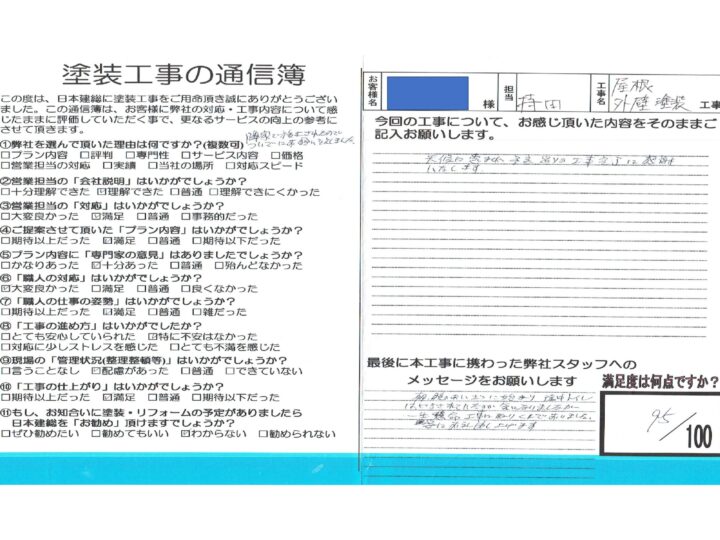 塗装工事の通信簿
この度は、日本建総に塗装工事をご用命頂き誠にありがとうござい
ました。この通信簿は、お客様に弊社の対応・工事内容について感
じたままに評価していただく事で、更なるサービスの向上の参考に
させて頂きます。
①弊社を選んで頂いた理由は何ですか?(複数可)
☐プラン内容 ☐評判 ☐専門性 ☐サービス内容 ☐価格
☐営業担当の対応 ☐実績 ☐当社の場所 ☐対応スピード
②営業担当の「会社説明」はいかがでしょうか?
☐十分理解できた ☑理解できた ☐普通 ☐理解できにくかった
③営業担当の「対応」はいかがでしょうか?
☐大変良かった ☑満足 ☐普通 ☐事務的だった
④ご提案させて頂いた「プラン内容」はいかがでしょうか?
☐期待以上だった ☑満足 ☐普通 ☐期待以下だった
⑤プラン内容に「専門家の意見」はありましたでしょうか?
☐かなりあった ☑十分あった ☐普通 ☐殆んどなかった
⑥「職人の対応」はいかがでしょうか?
☑大変良かった ☐満足 ☐普通 ☐良くなかった
⑦「職人の仕事の姿勢」はいかがでしょうか?
☐期待以上だった ☑満足 ☐普通 ☐雑だった
⑧「工事の進め方」はいかがでしたか?
☐とても安心していられた ☑特に不安はなかった
☐対応に少しストレスを感じた ☐とても不満を感じた
⑨現場の「管理状況(整理整頓等)」はいかがでしょうか?
☐言うことなし ☑配慮があった ☐普通 ☐できていない
⑩「工事の仕上がり」はいかがでしょうか?
☐期待以上だった ☑満足 ☐普通 ☐期待以下だった
⑪もし、お知合いに塗装・リフォームの予定がありましたら
日本建総を「お勧め」頂けますでしょうか?
☐ぜひ勧めたい ☐勧めてもいい ☑わからない ☐勧められない
お客様名 様 担当 持田 工事名 屋根 外壁塗装 工事
今回の工事について、お感じ頂いた内容をそのままご
記入お願いします。
いたします
最後に本工事に携わった弊社スタッフへの
メッセージをお願いします
満足度は何点ですか?
95/100